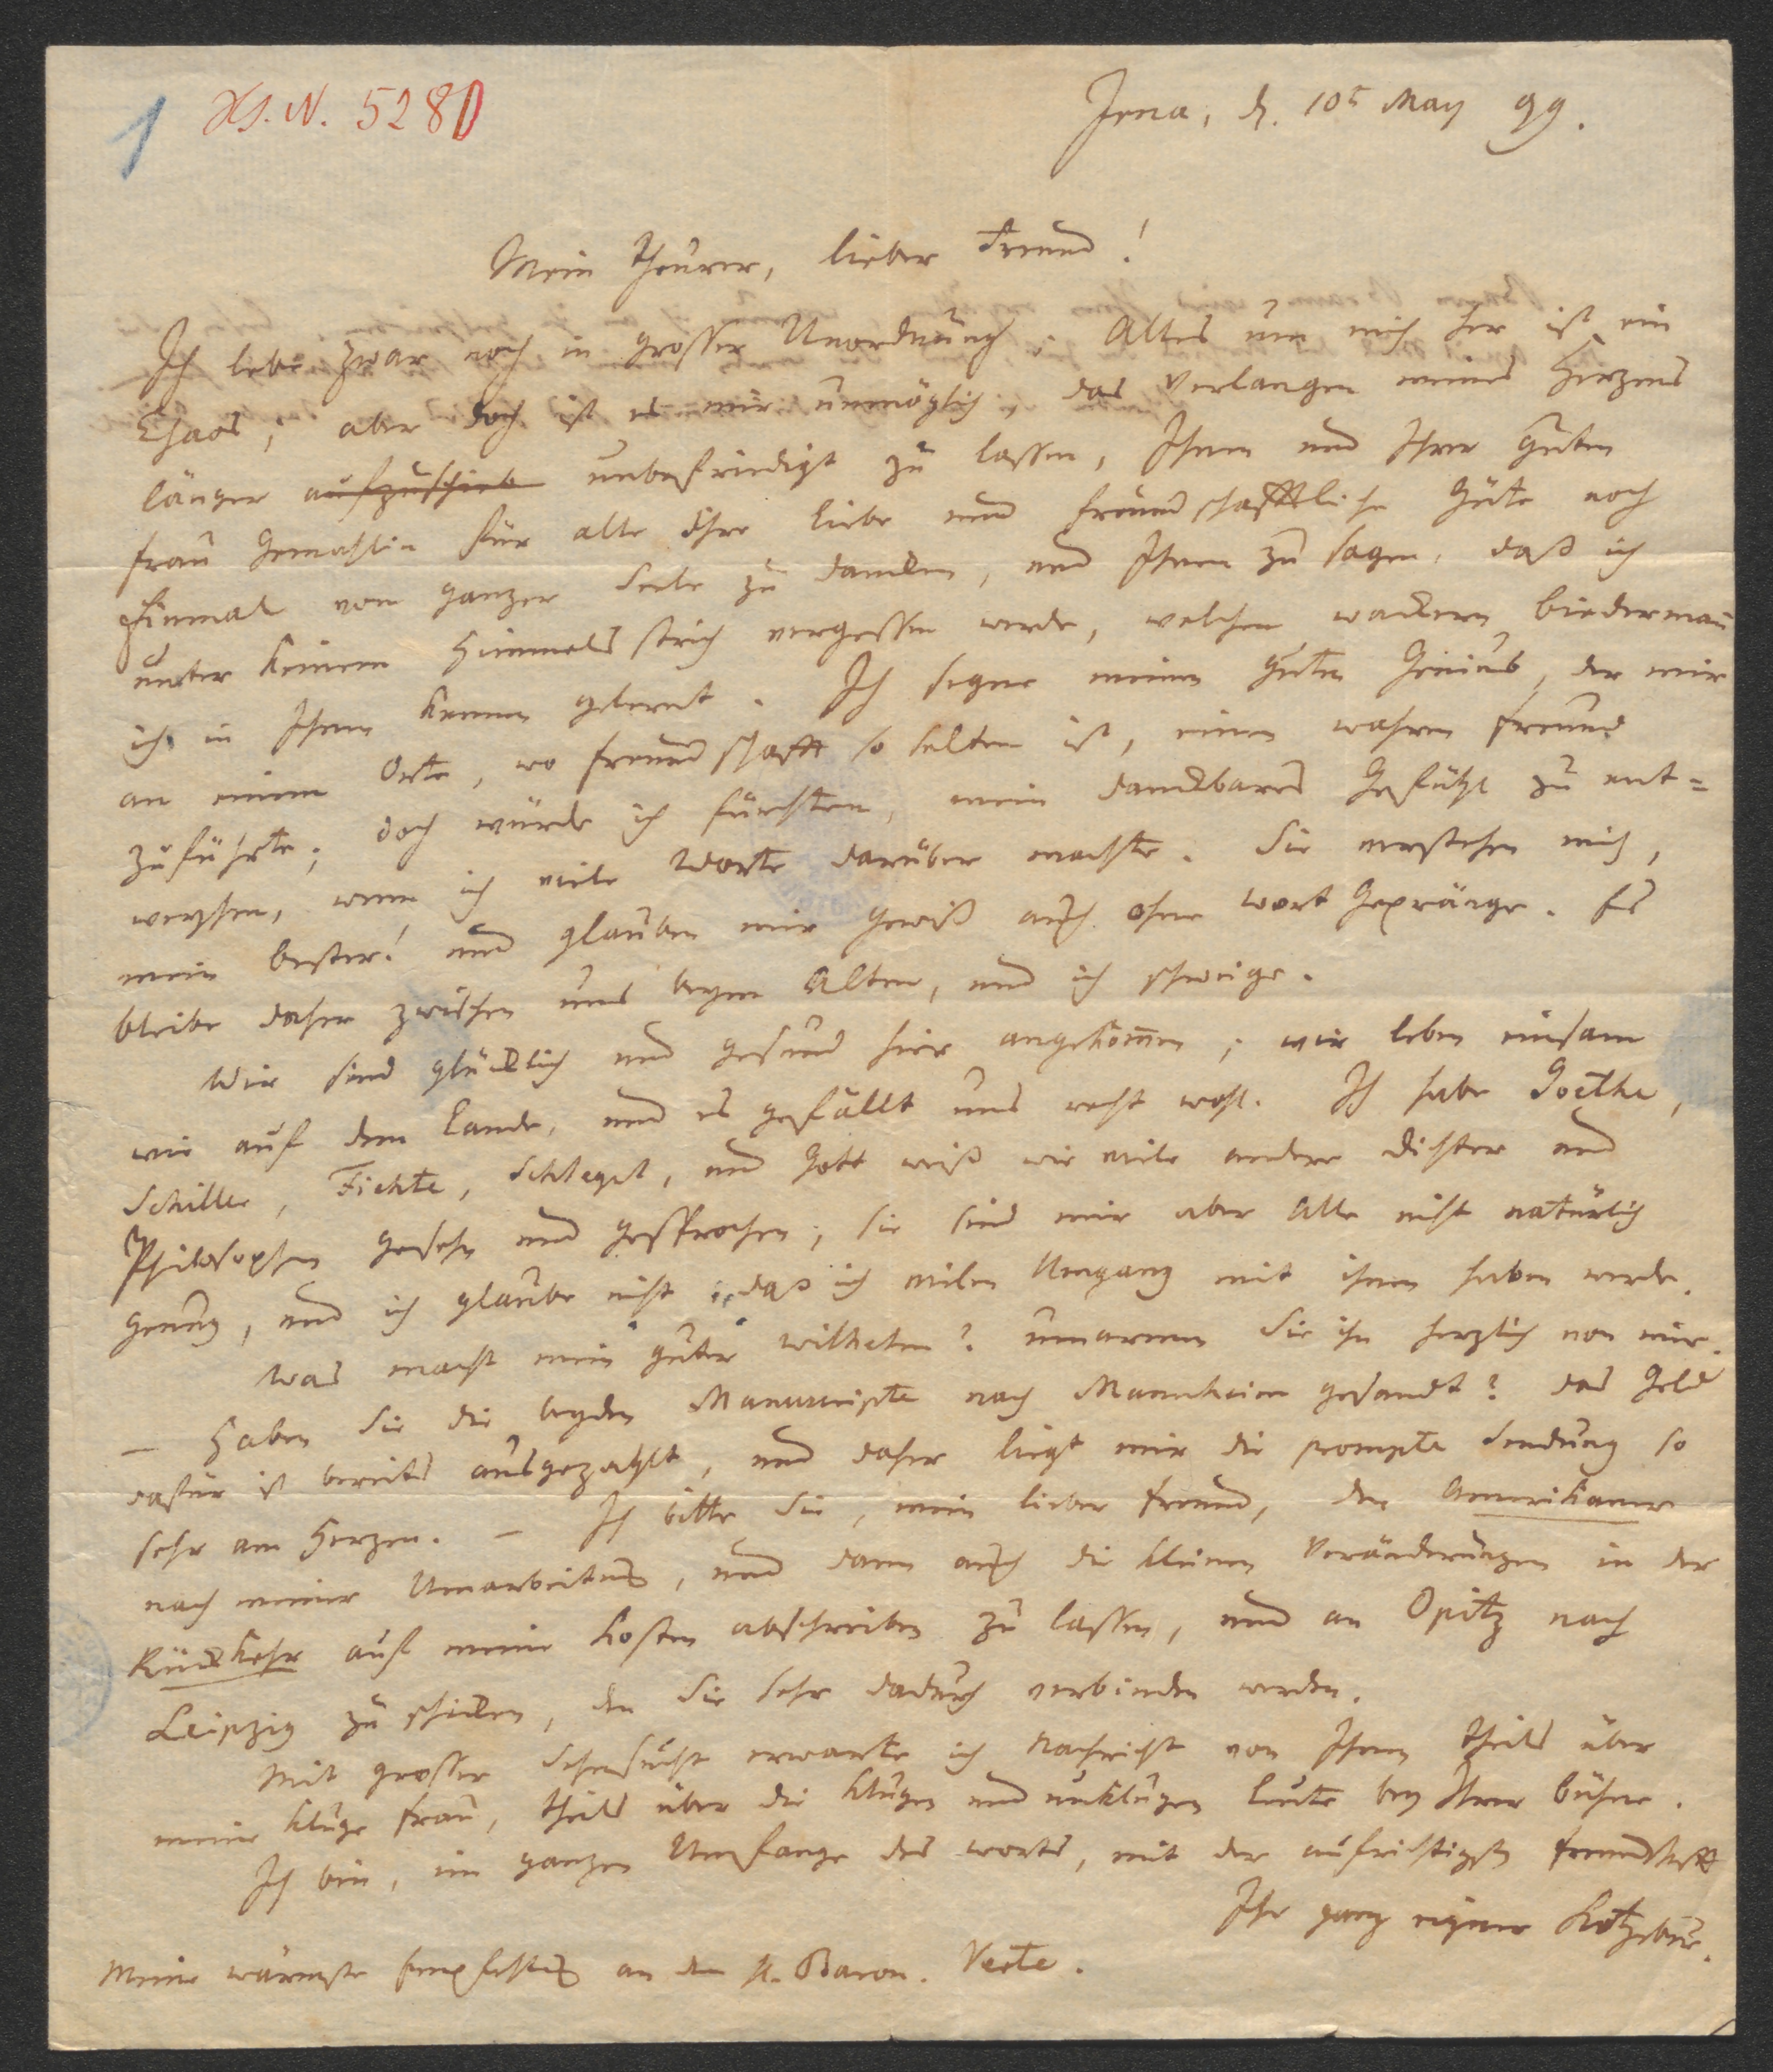 1 H.I.N. 5280
Jena, d. 10t May 99.
Mein theurer, lieber Freund!
Ich lebe zwar noch in grosser Unordnung; Alles um mich her ist ein
Chaos; aber doch ist es mir unmöglich, das Verlangen meines Herzens
länger aufzuschieb unbefriedigt zu lassen, Ihnen und Ihrer guten
Frau Gemahlin für alle Ihre Liebe und freundschafftliche Güte noch
Einmal von ganzer Seele zu danken, und Ihnen zu sagen, daß ich
unter keinem Himmelsstrich vergessen werde, welchen wackern Biedermañ
ich in Ihnen kennen gelernt. Ich segne meinen guten Genius, der mir
an einem Orte, wo Freundschafft so selten ist, einen wahren Freund
zuführte; doch würde ich fürchten, mein dankbares Gefühl zu ent=
weyhen, wenn ich viele Worte darüber machte. Sie verstehen mich,
mein bester! und glauben mir gewiß auch ohne Wort Gepränge. Es
bleibe daher zwischen uns beym Alten, und ich schweige.
Wir sind glücklich und gesund hier angekom̄en; wir leben einsam
wie auf dem Lande, und es gefällt uns recht wohl. Ich habe Goethe,
Schiller, Fichte, Schlegel, und Gott weiß wie viele andere Dichter und
Philosophen gesehn und gesprochen; sie sind mir aber Alle nicht natürlich
genung, und ich glaube nicht, daß ich vielen Umgang mit ihnen haben werde.
Was macht mein guter Wilhelm? umarmen Sie ihn herzlich von mir.
– Haben Sie die beyden Manuscripte nach Mannheim gesandt? das Geld
dafür ist bereits ausgezahlt, und daher liegt mir die prompte Sendung so
sehr am Herzen. – Ich bitte Sie, mein lieber Freund, den Amerikaner
nach meiner Umarbeitung, und dann auch die kleinen Veränderungen in der
Rückkehr auf meine Kosten abschreiben zu lassen, und an Opitz nach
Leipzig zu schicken, den Sie sehr dadurch verbinden werden.
Mit grosser Sehnsucht erwarte ich Nachricht von Ihnen theils über
meine kluge Frau, theils über die klugen und unklugen Leute bey Ihrer Bühne.
Ich bin, im ganzen Umfange des Worts, mit der aufrichtigsten Freundschafft
Ihr ganz eigner Kotzebue.
Meine wärmste Empfehlung an den H. Baron. Verte.